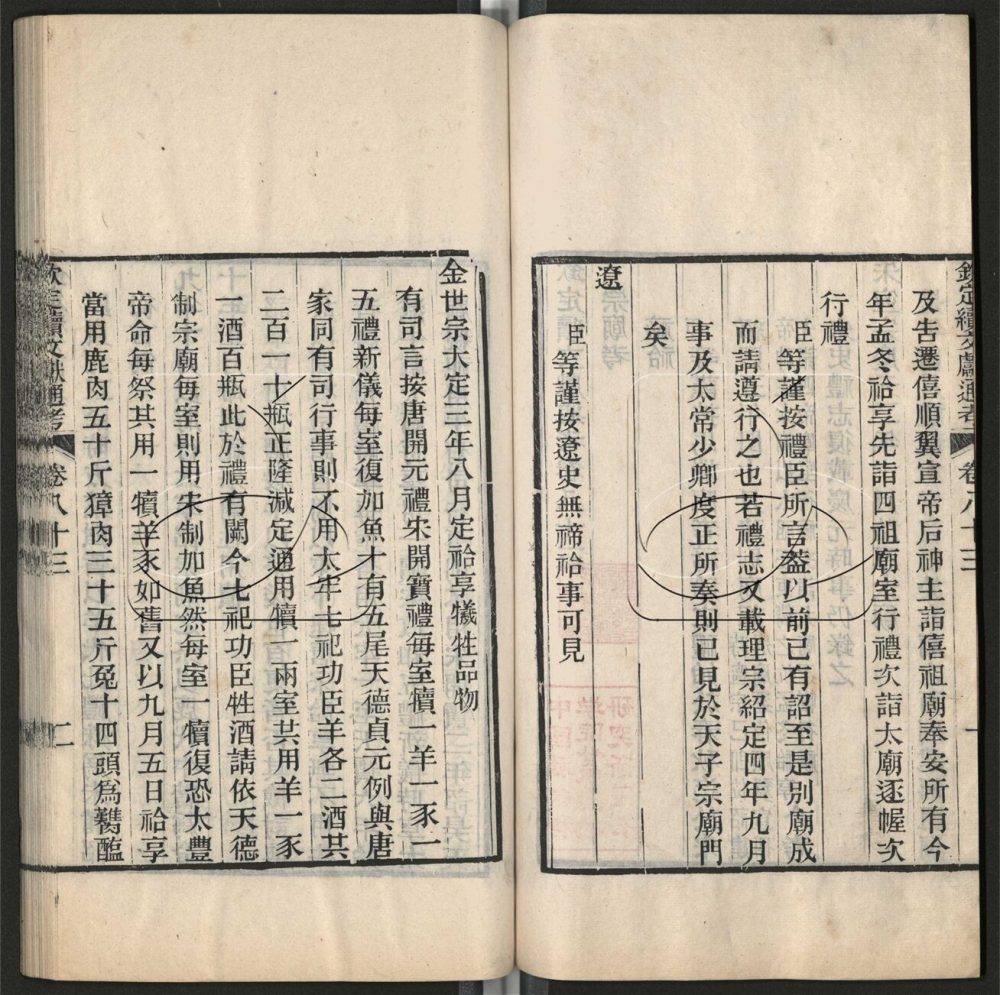 欽定續文獻通考 卷八十三 一
及告遷僖順翼宣帝后神主詣僖祖廟奉安所有今
年孟冬祫享先詣四祖廟室行禮次詣太廟逐幄次
行禮
臣等謹按禮臣所言蓋以前已有詔至是別廟成
而請遵行之也若禮志又載理宗紹定四年九月
事及太常少卿度正所奏則已見於天子宗廟門
矣
遼
臣等謹按遼史無禘祫事可見
金世宗大定三年八月定祫享犧牲品物
有司言按唐開元禮宋開寶禮每室犢一羊一豕一
五禮新儀每室復加魚十有五尾天德貞元例與唐
家同有司行事則不用太牢七祀功臣羊各二酒共
二百一十瓶正隆減定通用犢一兩室共用羊一豕
一酒百瓶此於禮有闕今七祀功臣牲酒請依天德
制宗廟每室則用宋制加魚然每室一犢復恐太豐
帝命每祭共用一犢羊豕如舊又以九月五日祫享
當用鹿肉五十斤獐肉三十五斤兔十四頭爲臡醢
欽定續文獻通考 卷八十三 二